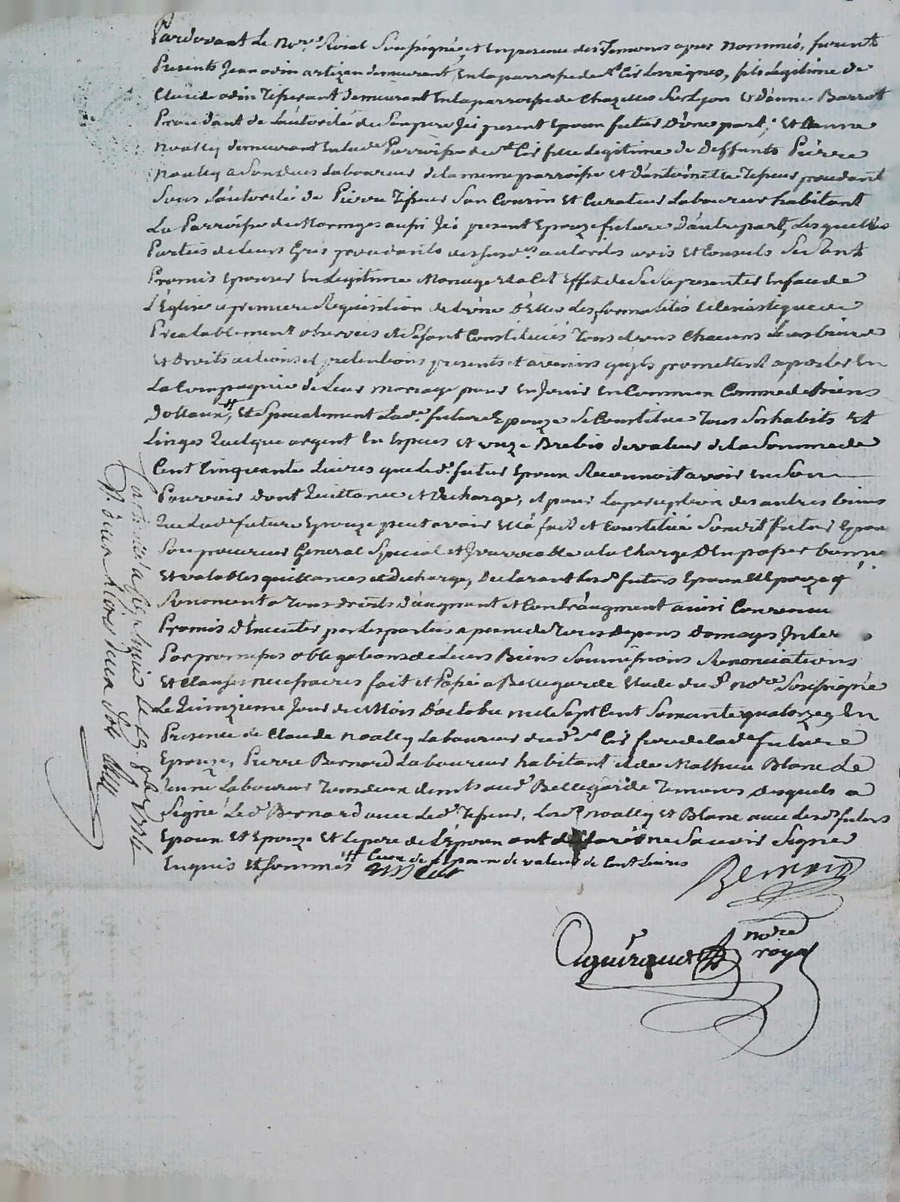 Pardevant Le nore Roial Soussigné, et En presence des Temoins apres nommés, furent
Presents Jean odin artizen demeurant En la parroisse de st Cir Les vignes, fils Légitime de
Claude odin Tisserant demeurant En la parroisse de Chazelles Sur Lyon et d'anne Barrot
Procedant de L'autorité de Son pere Jci present Epoux futur D'une part; Et anne
noally demeurant En lad. Parroisse de st Cir fille Legitime de Deffunts Pierre
noally a Son vivant Laboureur de la meme parroisse et d'antoinette Tisseur procedant
Sous L'autorité de Pierre Tisseur Son Cousin Et Curateur Laboureur habitant
La Parroisse de Maringes aussi Jci present Epouze future D'autre part, Lesquelles
Parties de Leurs Grés procedants desd. autorités avis et Conseils Se Sont
Promis Epouser En Legitime Mariage & a Cet Effet de Se Representer En face de
L'Eglise a premiere Requisition de L'une D'Elles Les formalités Eclesiastiques
Prealablement observées Et Se sont Constitués Tous deux Chacuns Leurs biens
Et droits actions et pretentions presents et avenirs qu'ils promettent aporter En
La Compagnie de Leur mariage pour En Jouir En Commun Comme de biens
dottaux, # Et Specialement Lad. future Epouze Se Constitue Tous Ses habits Et
Linges Quelque argent En Especes et onze Brebis de valeur de la Somme de
Cent Cinquante Livres que Led. futur Epoux Reconnoit avoir En Son
Pouvoir dont Quittance et decharge, et pour La perception des autres biens
Que Lad. future Epouze peut avoir Elle a fait et Constitué Sondit futur Epoux
Son procureur General Special et Jrrevocable a la Charge D'En passer bonnes
Et valables quittances et decharge, Declarant Lesd. futurs Epoux Et Epouze q.
Renoncent a Tous droits D'augment et Contr'augment ainsi Convenu
Promis D'Executer par Les parties a peine de Tous depens Domages Interets
Par promesses obligations de Leurs Biens Soumissions Renonciations
Et Clauses necessaires fait et Passé a Bellegarde Etude du d. nore Soussigné
Le Quinzieme Jour du Mois D'octobre mil Sept Cent Soixante quatorze En
Presence de Claude noally Laboureur dud. st Cir frere de lad. future
Epouze, Pierre Bernard Laboureur habitant et de Mathieu Blanc Le
Jeune Laboureur Tous deux demts aud. Bellegarde Temoins desquels a
Signé Led. Bernard avec Led. Tisseur, Lesd. noally et Blanc avec Lesd. futurs
Epoux Et Epouze Et Le pere de L'Epoux ont declaré ne Savoir Signer
Enquis Et Sommés # Ceux de l'Epoux de valeur de Cent Livres
Bernard
Aguiraud nore
royal